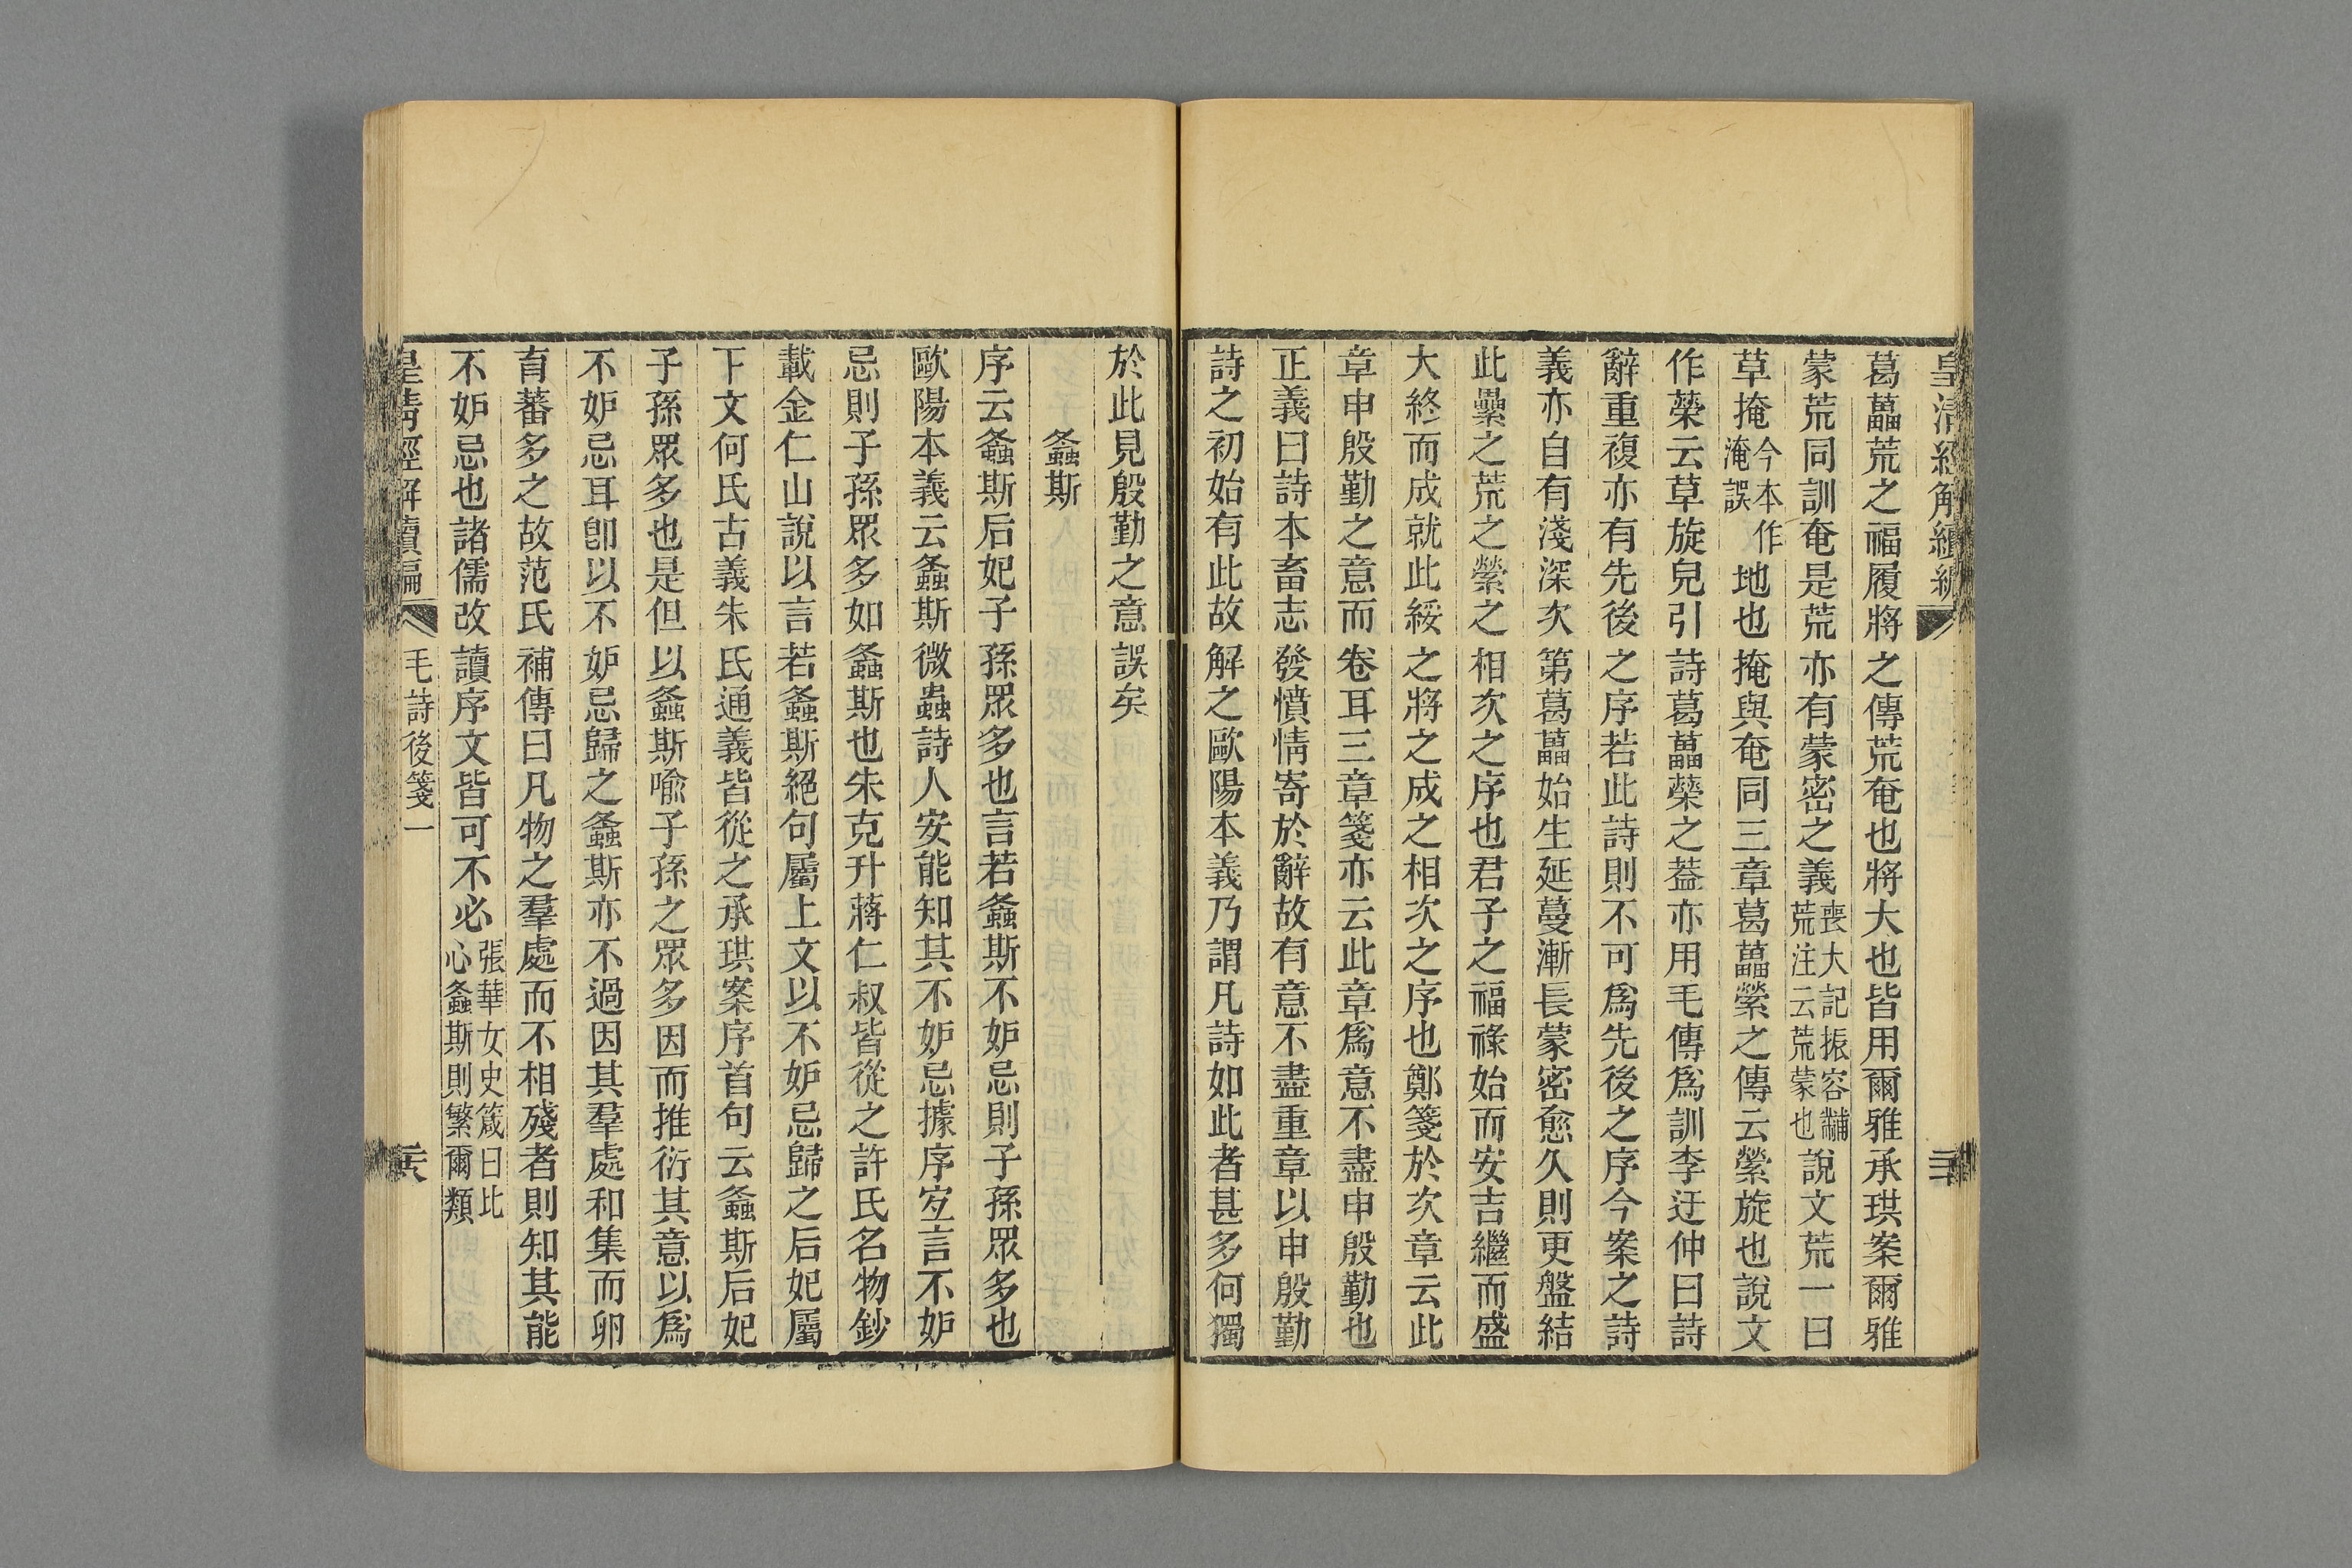 皇清經解續編
葛藟荒之福履將之傳荒奄也將大也皆用爾雅承珙案爾雅
蒙荒同訓奄是荒亦有蒙密之義喪大記振容黼荒注云荒蒙也說文荒一曰
草掩今本作淹誤地也掩與奄同三章葛藟縈之傳云縈旋也說文
作藥云草旋皃引詩葛藟藥之葢亦用毛傳爲訓李迂仲曰詩
辭重複亦有先後之序若此詩則不可爲先後之序今案之詩
義亦自有淺深次第葛藟始生延蔓漸長蒙密愈久則更盤結
此纍之荒之縈之相次之序也君子之福祿始而安吉繼而盛
大終而成就此綏之將之成之相次之序也鄭箋於次章云此
章申殷勤之意而卷耳三章箋亦云此章爲意不盡申殷勤也
正義曰詩本畜志發憤情寄於辭故有意不盡重章以申殷勤
詩之初始有此故解之歐陽本義乃謂凡詩如此者甚多何獨
於此見殷勤之意誤矣
螽斯
序云螽斯后妃子孫眾多也言若螽斯不妒忌則子孫眾多也
歐陽本義云螽斯微蟲詩人安能知其不妒忌據序宐言不妒
忌則子孫眾多如螽斯也朱克升蔣仁叔皆從之許氏名物鈔
載金仁山說以言若螽斯絕句屬上文以不妒忌歸之后妃屬
下文何氏古義朱氏通義皆從之承珙案序首句云螽斯后妃
子孫眾多也是但以螽斯喻子孫之眾多因而推衍其意以爲
不妒忌耳卽以不妒忌歸之螽斯亦不過因其羣處和集而卵
育蕃多之故范氏補傳曰凡物之羣處而不相殘者則知其能
不妒忌也諸儒改讀序文皆可不必張華女史箴曰比心螽斯則繁爾類
皇清經解續編
毛詩後箋一